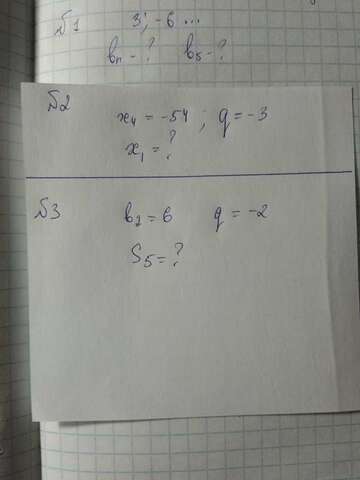 №1 3; -6 ...
bn - ? b5 - ?
№2
x4 = -54 ; q = -3
x1 = ?
№3 b2 = 6 q = -2
S5 = ?